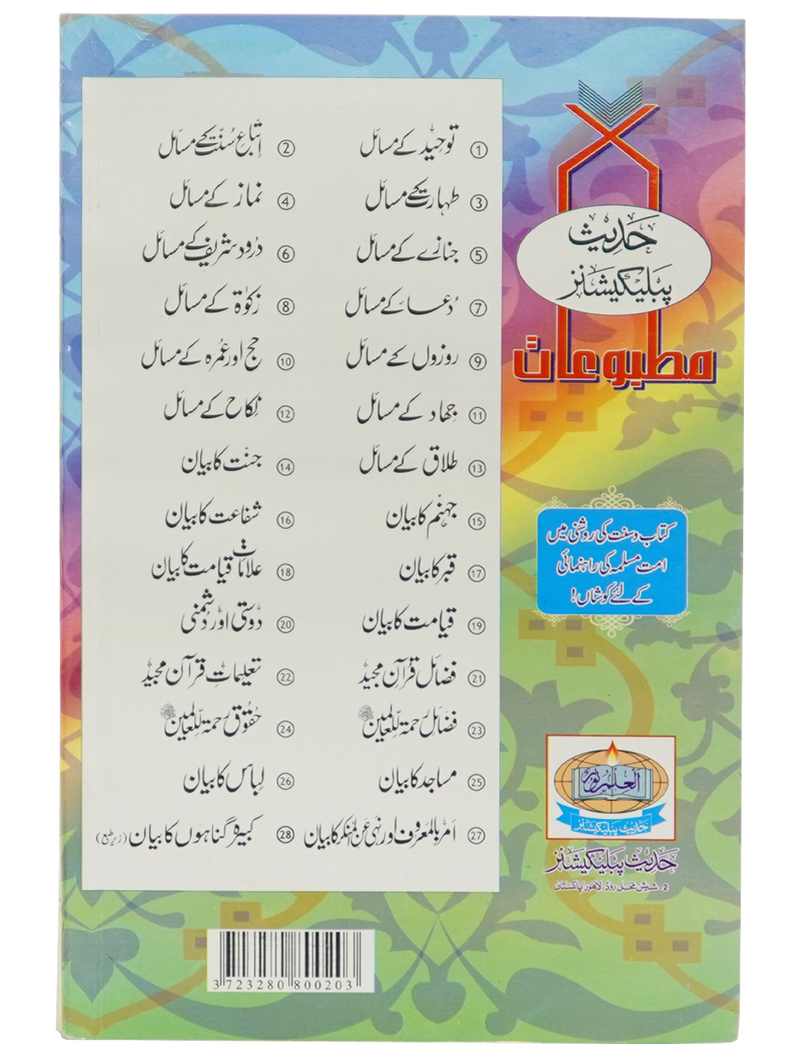 حدیث
پبلیکیشنز
مطبوعات
① توحید کے مسائل ② اتباع سُنّت کے مسائل
③ طہارت کے مسائل ④ نماز کے مسائل
⑤ جنازے کے مسائل ⑥ درود شریف کے مسائل
⑦ دُعا کے مسائل ⑧ زکوٰۃ کے مسائل
⑨ روزوں کے مسائل ⑩ حج اور عمرہ کے مسائل
⑪ جہاد کے مسائل ⑫ نکاح کے مسائل
⑬ طلاق کے مسائل ⑭ جنت کا بیان
⑮ جہنّم کا بیان ⑯ شفاعت کا بیان
⑰ قبر کا بیان ⑱ علامات قیامت کا بیان
⑲ قیامت کا بیان ⑳ دوستی اور دشمنی
㉑ فضائل قرآن مجید ㉒ تعلیماتِ قرآن مجید
㉓ فضائل رحمۃ للعالمین ﷺ ㉔ حقوق رحمۃ للعالمین ﷺ
㉕ مساجد کا بیان ㉖ لباس کا بیان
㉗ امر بالمعروف اور نہی عن المنکر کا بیان ㉘ کبیرہ گناہوں کا بیان (زیر طبع)
کتاب و سنت کی روشنی میں
امت مسلمہ کی راہنمائی
کے لئے کوشاں!
العلم نور
حدیث پبلیکیشنز
حدیث پبلیکیشنز
2- شیش محل روڈ، لاہور پاکستان
3 723280 800203